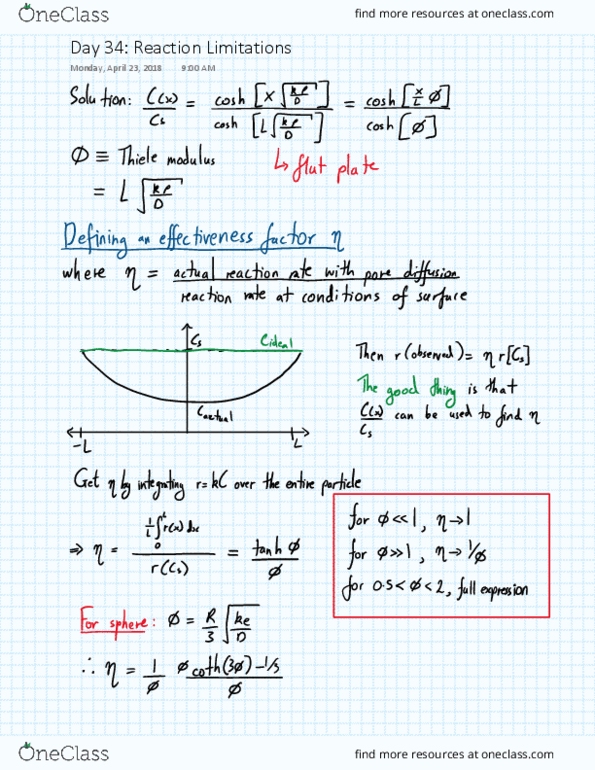 OneClass
find more resources at oneclass.com
Day 34: Reaction Limitations
Monday, April 23, 2018 9:00 AM
Solution: C(x)/Cs = cosh[x√(kρ/D)] / cosh[L√(kρ/D)] = cosh[x/L ø] / cosh[ø]
↳ flat plate
Ø ≡ Thiele modulus
= L √(kρ/D)
Defining an effectiveness factor η
where η = actual reaction rate with pore diffusion
reaction rate at conditions of surface
Cs
Cideal
Cactual
-L
L
Then r(observed) = η r[Cs]
The good thing is that
C(x)/Cs can be used to find η
Get η by integrating r=kC over the entire particle
⇒ η = 1/L ∫₀ᴸ r(x) dx / r(Cs) = tanh ø / ø
for ø<<1, η→1
for ø>>1, η→ 1/ø
for 0.5<ø<2, full expression
For sphere: ø = R/3 √(kρ/D)
∴ η = 1/ø øcoth(3ø)-1/3 / ø
OneClass
find more resources at oneclass.com